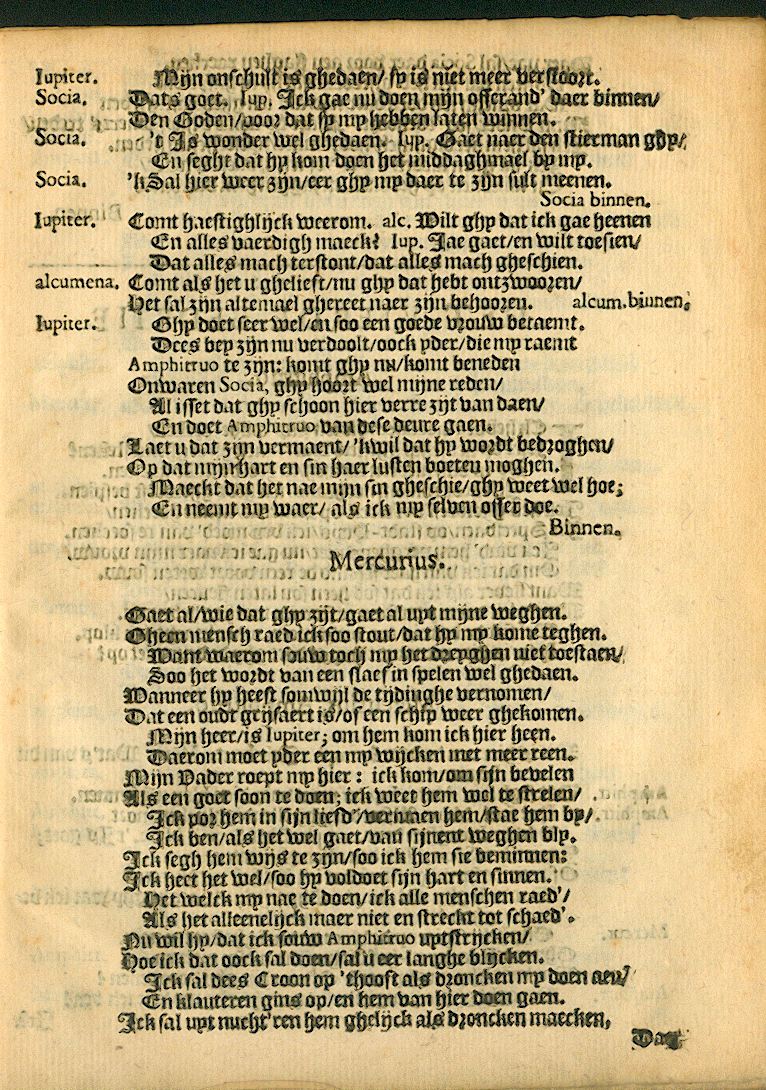 Iupiter. Mijn onschult is ghedaen/ sy is niet meer verstoort.
Socia. Dats goet. Iup. Ick gae nu doen mijn offerand' daer binnen/
Den Goden/voor dat sy my hebben laten winnen.
Socia. 't Is wonder wel ghedaen. Iup. Gaet naer den stierman ghy/
En seght dat hy kom doen het middaghmael by my.
Socia. 'kSal hier weer zijn/eer ghy my daer te zijn sult meenen.
Socia binnen.
Iupiter. Comt haestighlijck weerom. alc. Wilt ghy dat ick gae heenen
En alles vaerdigh maeck? Iup. Jae gaet/en wilt toesien/
Dat alles mach terstont/dat alles mach gheschien.
alcumena. Comt als het u ghelieft/nu ghy dat hebt ontzwooren/
Het sal zijn altemael ghereet naer zijn behooren. alcum.binnen.
Iupiter. Ghy doet seer wel/en soo een goede vrouw betaemt.
Dees bey zijn nu verdoolt/oock yder/die my raemt
Amphitruo te zijn: komt ghy nu/komt beneden
Onwaren Socia, ghy hoort wel mijne reden/
Al isset dat ghy schoon hier verre zijt van daen/
En doet Amphitruo van dese deure gaen.
Laet u dat zijn vermaent/'kwil dat hy wordt bedroghen/
Op dat mijn hart en sin haer lusten boeten moghen.
Maeckt dat het nae mijn sin gheschie/ghy weet wel hoe;
En neemt my waer/ als ick my selven offer doe.
Binnen.
Mercurius.
Gaet al/wie dat ghy zijt/gaet al uyt mijne weghen.
Gheen mensch raed ick soo stout/dat hy my kome teghen.
Want waerom souw toch my het dreyghen niet toestaen/
Soo het wordt van een slaef in spelen wel ghedaen.
Wanneer hy heeft somwijl de tijdinghe vernomen/
Dat een oudt grijsaert is/of een schip weer ghekomen.
Mijn heer/is Iupiter; om hem kom ick hier heen.
Daerom moet yder een my wijcken met meer reen.
Mijn Vader roept my hier : ick kom/om sijn bevelen
Als een goet soon te doen; ick weet hem wel te strelen/
Ick por hem in sijn liefd'/vermaen hem/stae hem by/
Ick ben/als het wel gaet/van sijnent weghen bly.
Ick segh hem wijs te zijn/soo ick hem sie beminnen:
Ick heet het wel/soo hy voldoet sijn hart en sinnen.
Het welck my nae te doen/ick alle menschen raed'/
Als het alleenelijck maer niet en streckt tot schaed'.
Nu wil hy/dat ick souw Amphitruo uytstrijcken/
Hoe ick dat oock sal doen/sal u eer langhe blijcken.
Ick sal dees Croon op 'thooft als droncken my doen aen/
En klauteren gins op/en hem van hier doen gaen.
Ick sal uyt nucht'ren hem ghelijck als droncken maecken,
Dat